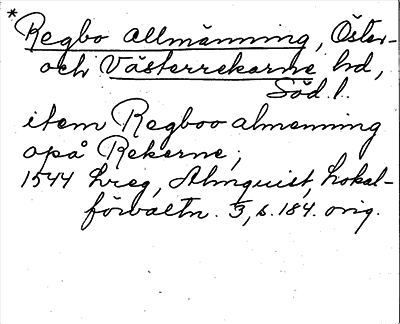 * Regbo allmänning, Öster-
och Västerrekarne hd,
Söd. l.
item Regboo almenning
opå Rekerne;
1544 hreg, Almquist, Lokal-
förvaltn. 3, s. 184. orig.